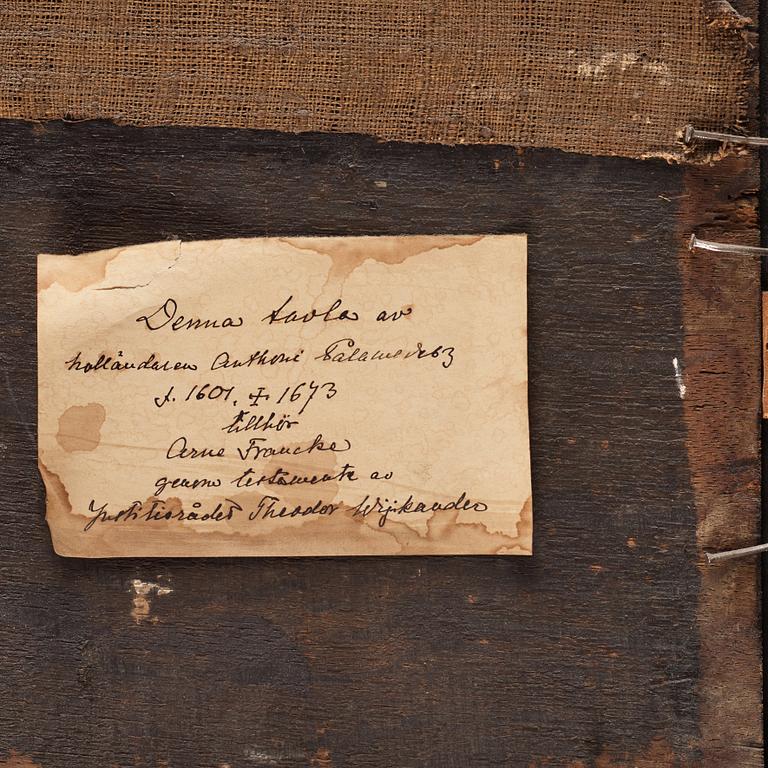 Denna tavla av
holländaren Anthoni Palamedesz
f. 1601. ‡ 1673
tillhör
Arne Francke
genom testamente av
Justitierådet Theodor Wijkander